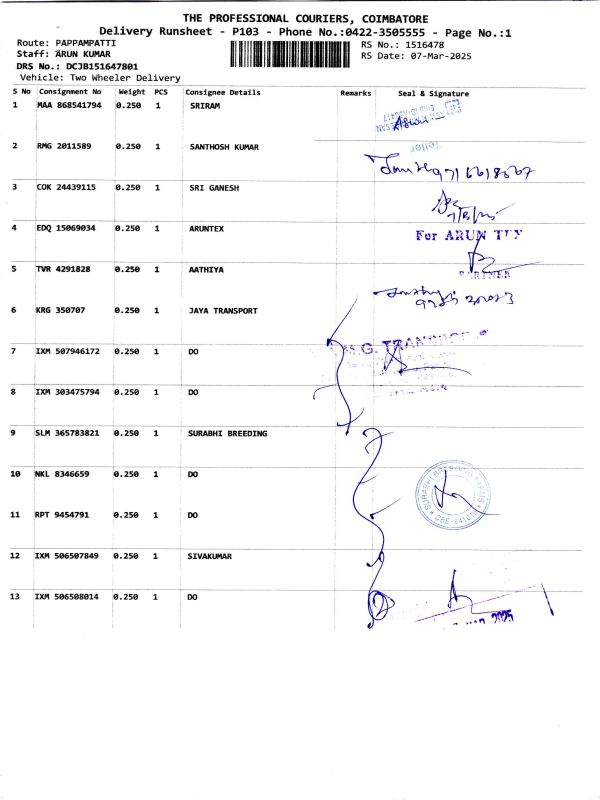 THE PROFESSIONAL COURIERS, COIMBATORE
Delivery Runsheet - P103 - Phone No.:0422-3505555 - Page No.:1
Route: PAPPAMPATTI RS No.: 1516478
Staff: ARUN KUMAR RS Date: 07-Mar-2025
DRS No.: DCJB151647801
Vehicle: Two Wheeler Delivery
S No Consignment No Weight PCS Consignee Details Remarks Seal & Signature
1 MAA 868541794 0.250 1 SRIRAM
Teller
2 RMG 2011589 0.250 1 SANTHOSH KUMAR
3 COK 24439115 0.250 1 SRI GANESH
4 EDQ 15069034 0.250 1 ARUNTEX
For ARUN TEX
PARTNER
5 TVR 4291828 0.250 1 AATHIYA
6 KRG 350707 1 JAYA TRANSPORT
M.G. TRANSPORT
7 IXM 507946172 0.250 1 DO
8 IXM 303475794 0.250 1 DO
9 SLM 365783821 0.250 1 SURABHI BREEDING
10 NKL 8346659 0.250 1 DO
11 RPT 9454791 0.250 1 DO
12 IXM 506507849 0.250 1 SIVAKUMAR
13 IXM 506508014 0.250 1 DO
2025